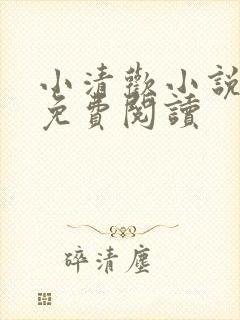 小清歡小說
免費閱讀
碎清塵